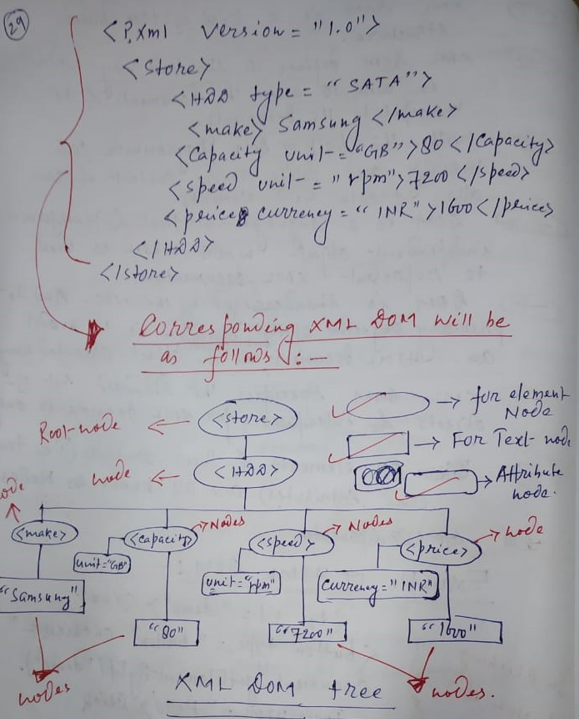 29
<?xml version = "1.0">
<store>
<HDD type = "SATA">
<make> Samsung </make>
<Capacity unit = "GB">80 </Capacity>
<speed unit = "rpm">7200 </speed>
<price currency = "INR">1600</price>
</HDD>
</store>
Corresponding XML DOM will be
as follows :-
Root node ← <store>
→ for element Node
→ For Text node
node ← <HDD>
→ Attribute node.
node
<make>
<capacity> → Nodes
<speed> → Nodes
<price> → node
unit="GB"
unit="rpm"
Currency="INR"
"Samsung"
"80"
"7200"
"1600"
nodes
nodes.
XML DOM tree